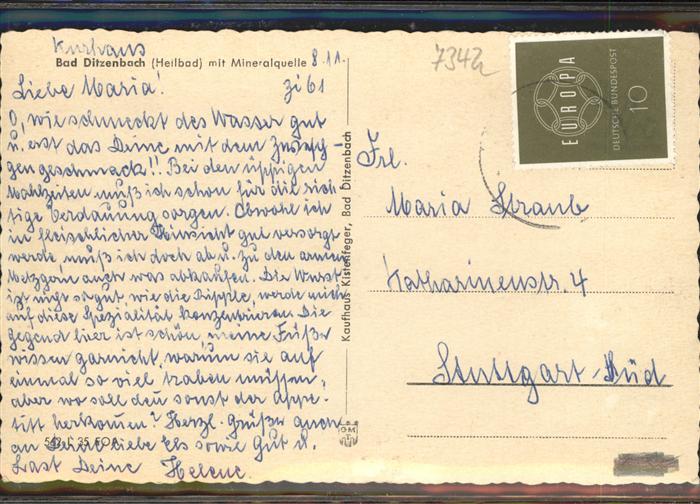 Kurhaus
Bad Ditzenbach (Heilbad) mit Mineralquelle 8.11.
Zi 61
Liebe Maria!
O, wie schmeckt des Wasser gut
u. erst das Deine mit dem
gengeschmack!! Bei den üppigen
Mahlzeiten muß ich schon für die rich-
tige Verdauung sorgen. Obwohl ich
in fleischlicher Hinsicht gut versorgt
werde muß ich doch ab u. zu den armen
Metzgern auch was abkaufen. Die Wurst
ist nicht so gut, wie die, werde mich
auf diese Spezialität konzentrieren. Die
Gegend hier ist schön, meine Füße
wissen garnicht, warum sie auf
einmal so viel traben müssen,
aber wo soll denn sonst der Appe-
titt herkommen? Herzl. Grüße auch
an Deine liebe Els sowie Gut u.
Last Deine Helene
Kaufhaus Kistenfeger, Bad Ditzenbach
7342
EUROPA
DEUTSCHE BUNDESPOST
10
Frl.
Maria Straub
Katharinenstr. 4
Stuttgart-Süd